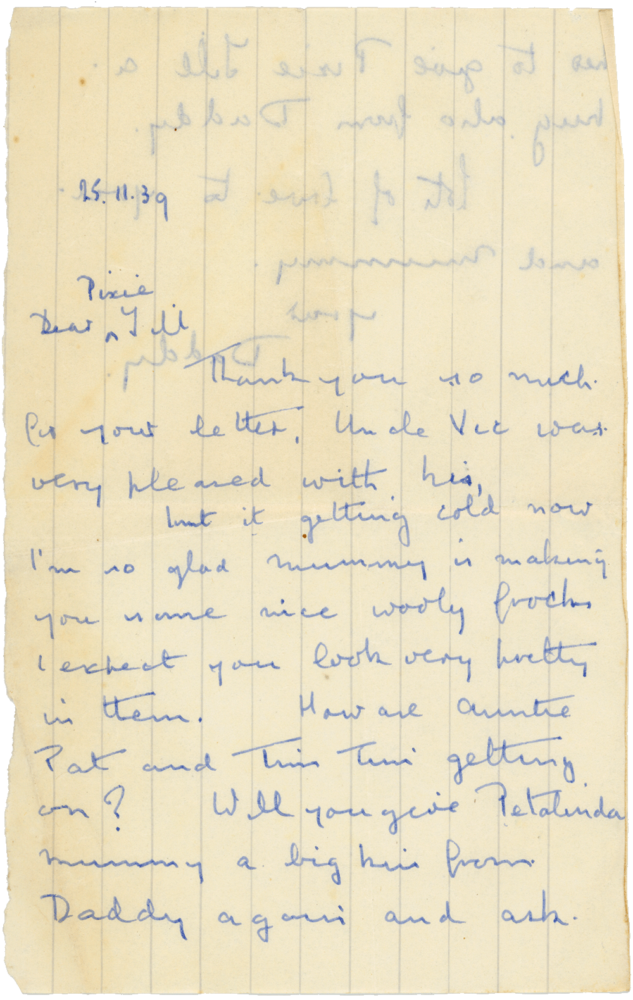 25.11.39
Pixie
Dear ^ Jill
Thank you so much
for your letter, Uncle Vic was
very pleased with his,
Isnt it getting cold now
I'm so glad mummy is making
you some nice wooly frocks
I expect you look very pretty
in them. How are auntie
Pat and Tim Tim getting
on? Will you give Petalinda
mummy a big kiss from
Daddy again and ask